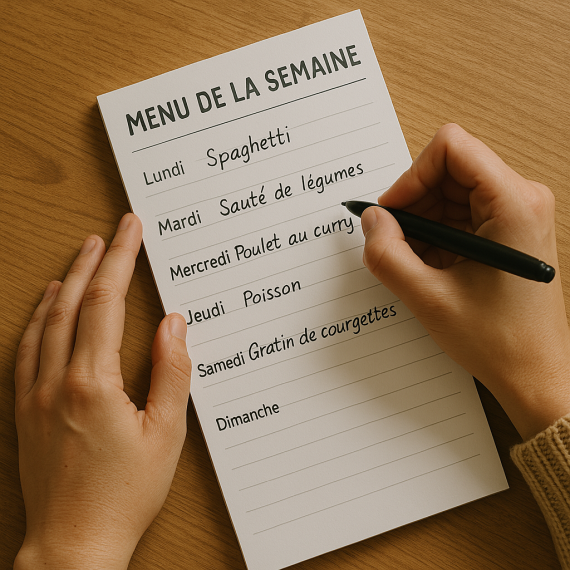 MENU DE LA SEMAINE
Lundi Spaghetti
Mardi Sauté de légumes
Mercredi Poulet au curry
Jeudi Poisson
Samedi Gratin de courgettes
Dimanche